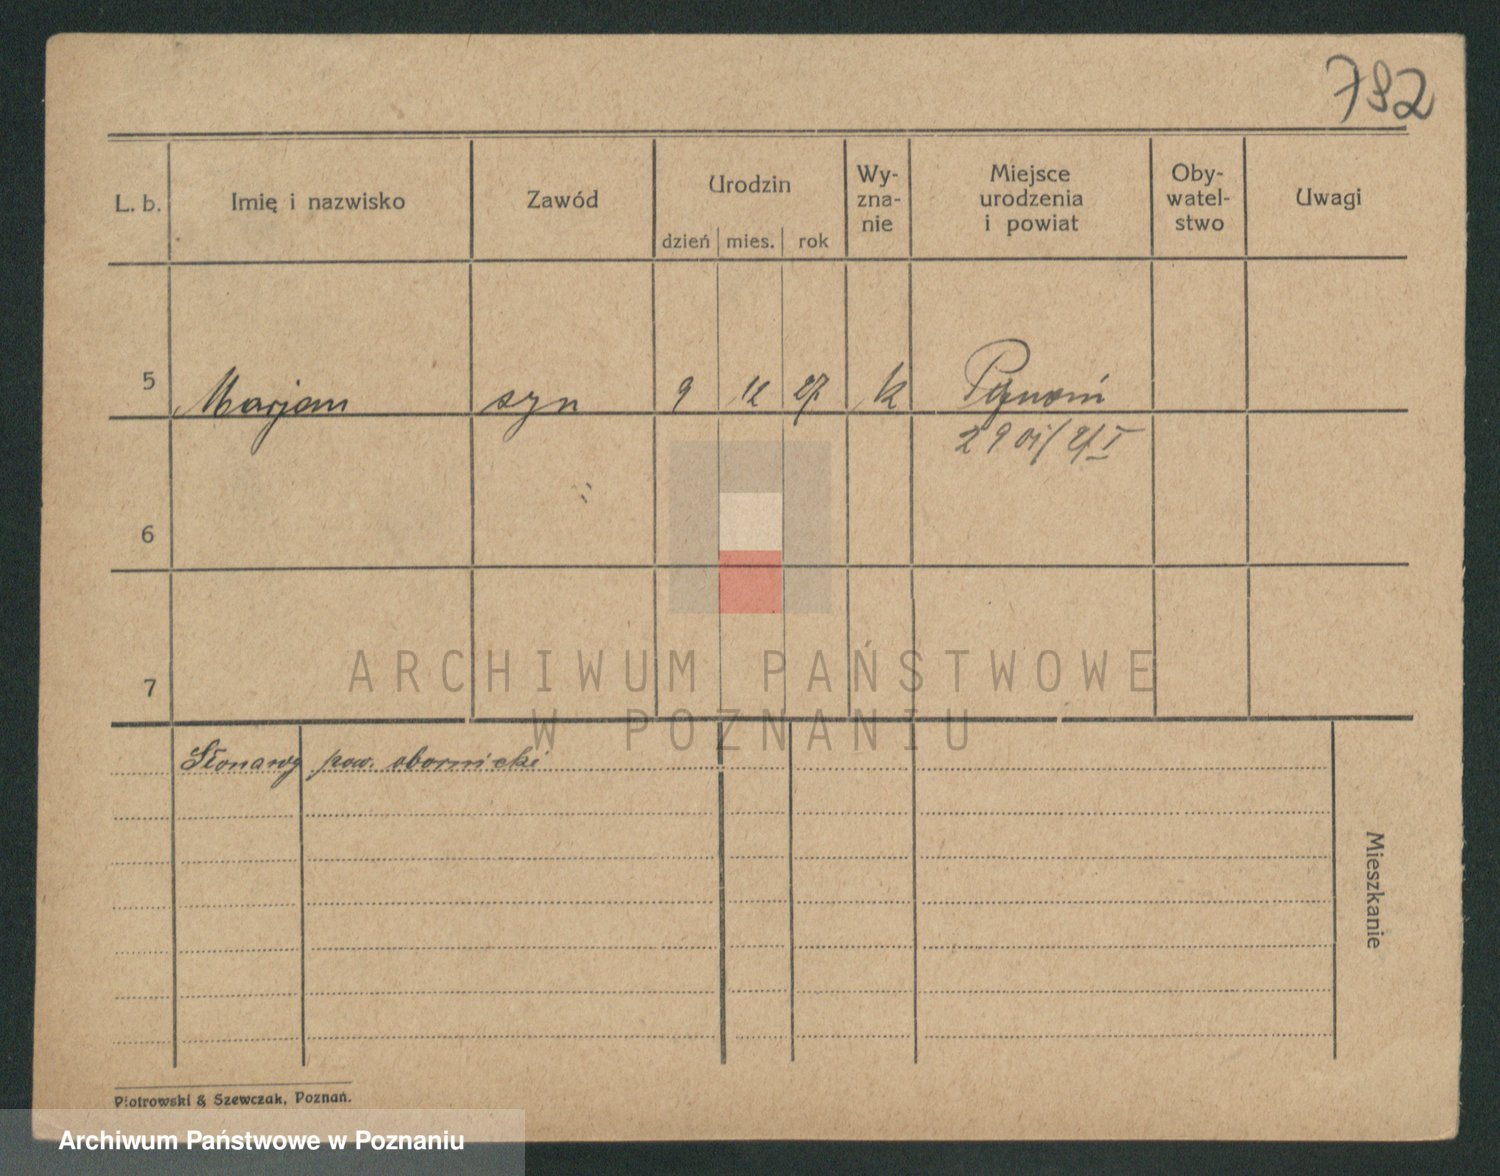 792
L. b. Imię i nazwisko Zawód Urodzin Wy-zna-nie Miejsce urodzenia i powiat Oby-watel-stwo Uwagi
dzień mies. rok
5 Marjan syn 9 12 27 k Poznań
6
7
ARCHIWUM PAŃSTWOWE
W POZNANIU
Słonawy pow. obornicki
Mieszkanie
Piotrowski & Szewczak, Poznań.
Archiwum Państwowe w Poznaniu